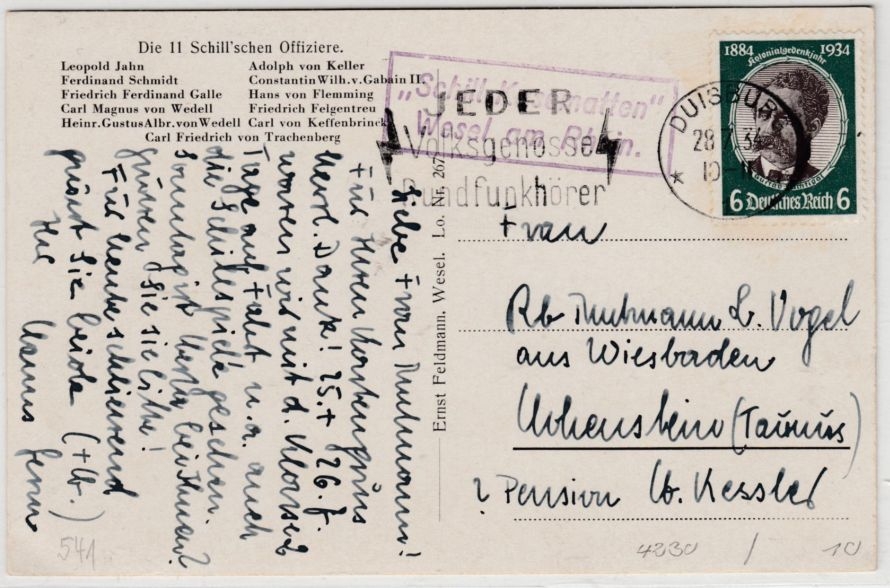 Die 11 Schill'schen Offiziere.
Leopold Jahn
Ferdinand Schmidt
Friedrich Ferdinand Galle
Carl Magnus von Wedell
Heinr. Gustus Albr. von Wedell
Adolph von Keller
Constantin Wilh. v. Gabain II.
Hans von Flemming
Friedrich Felgentreu
Carl von Keffenbrinck
Carl Friedrich von Trachenberg
"Schill-Kasematten"
Wesel am Rhein.
JEDER
Volksgenosse
Rundfunkhörer
DUISBURG
28.7.34
1884 1934
Kolonialgedenkjahr
6 Deutsches Reich 6
Ernst Feldmann, Wesel. Lo. Nr. 267
Liebe Frau
für Ihren Kartengruss
herzl. Dank! 25. + 26. 7.
waren wir mit d. Klasse
Tage auf Fahrt u. a. auch
die Schillspiele gesehen.
Sonntag ist
grüssen Sie sie bitte!
Für heute schliessend
grüsst Sie beide
Ihr
Frau
Rb L. Vogel
aus Wiesbaden
Hohenstein (Taunus)
Pension Kessler
541
4230 / 10